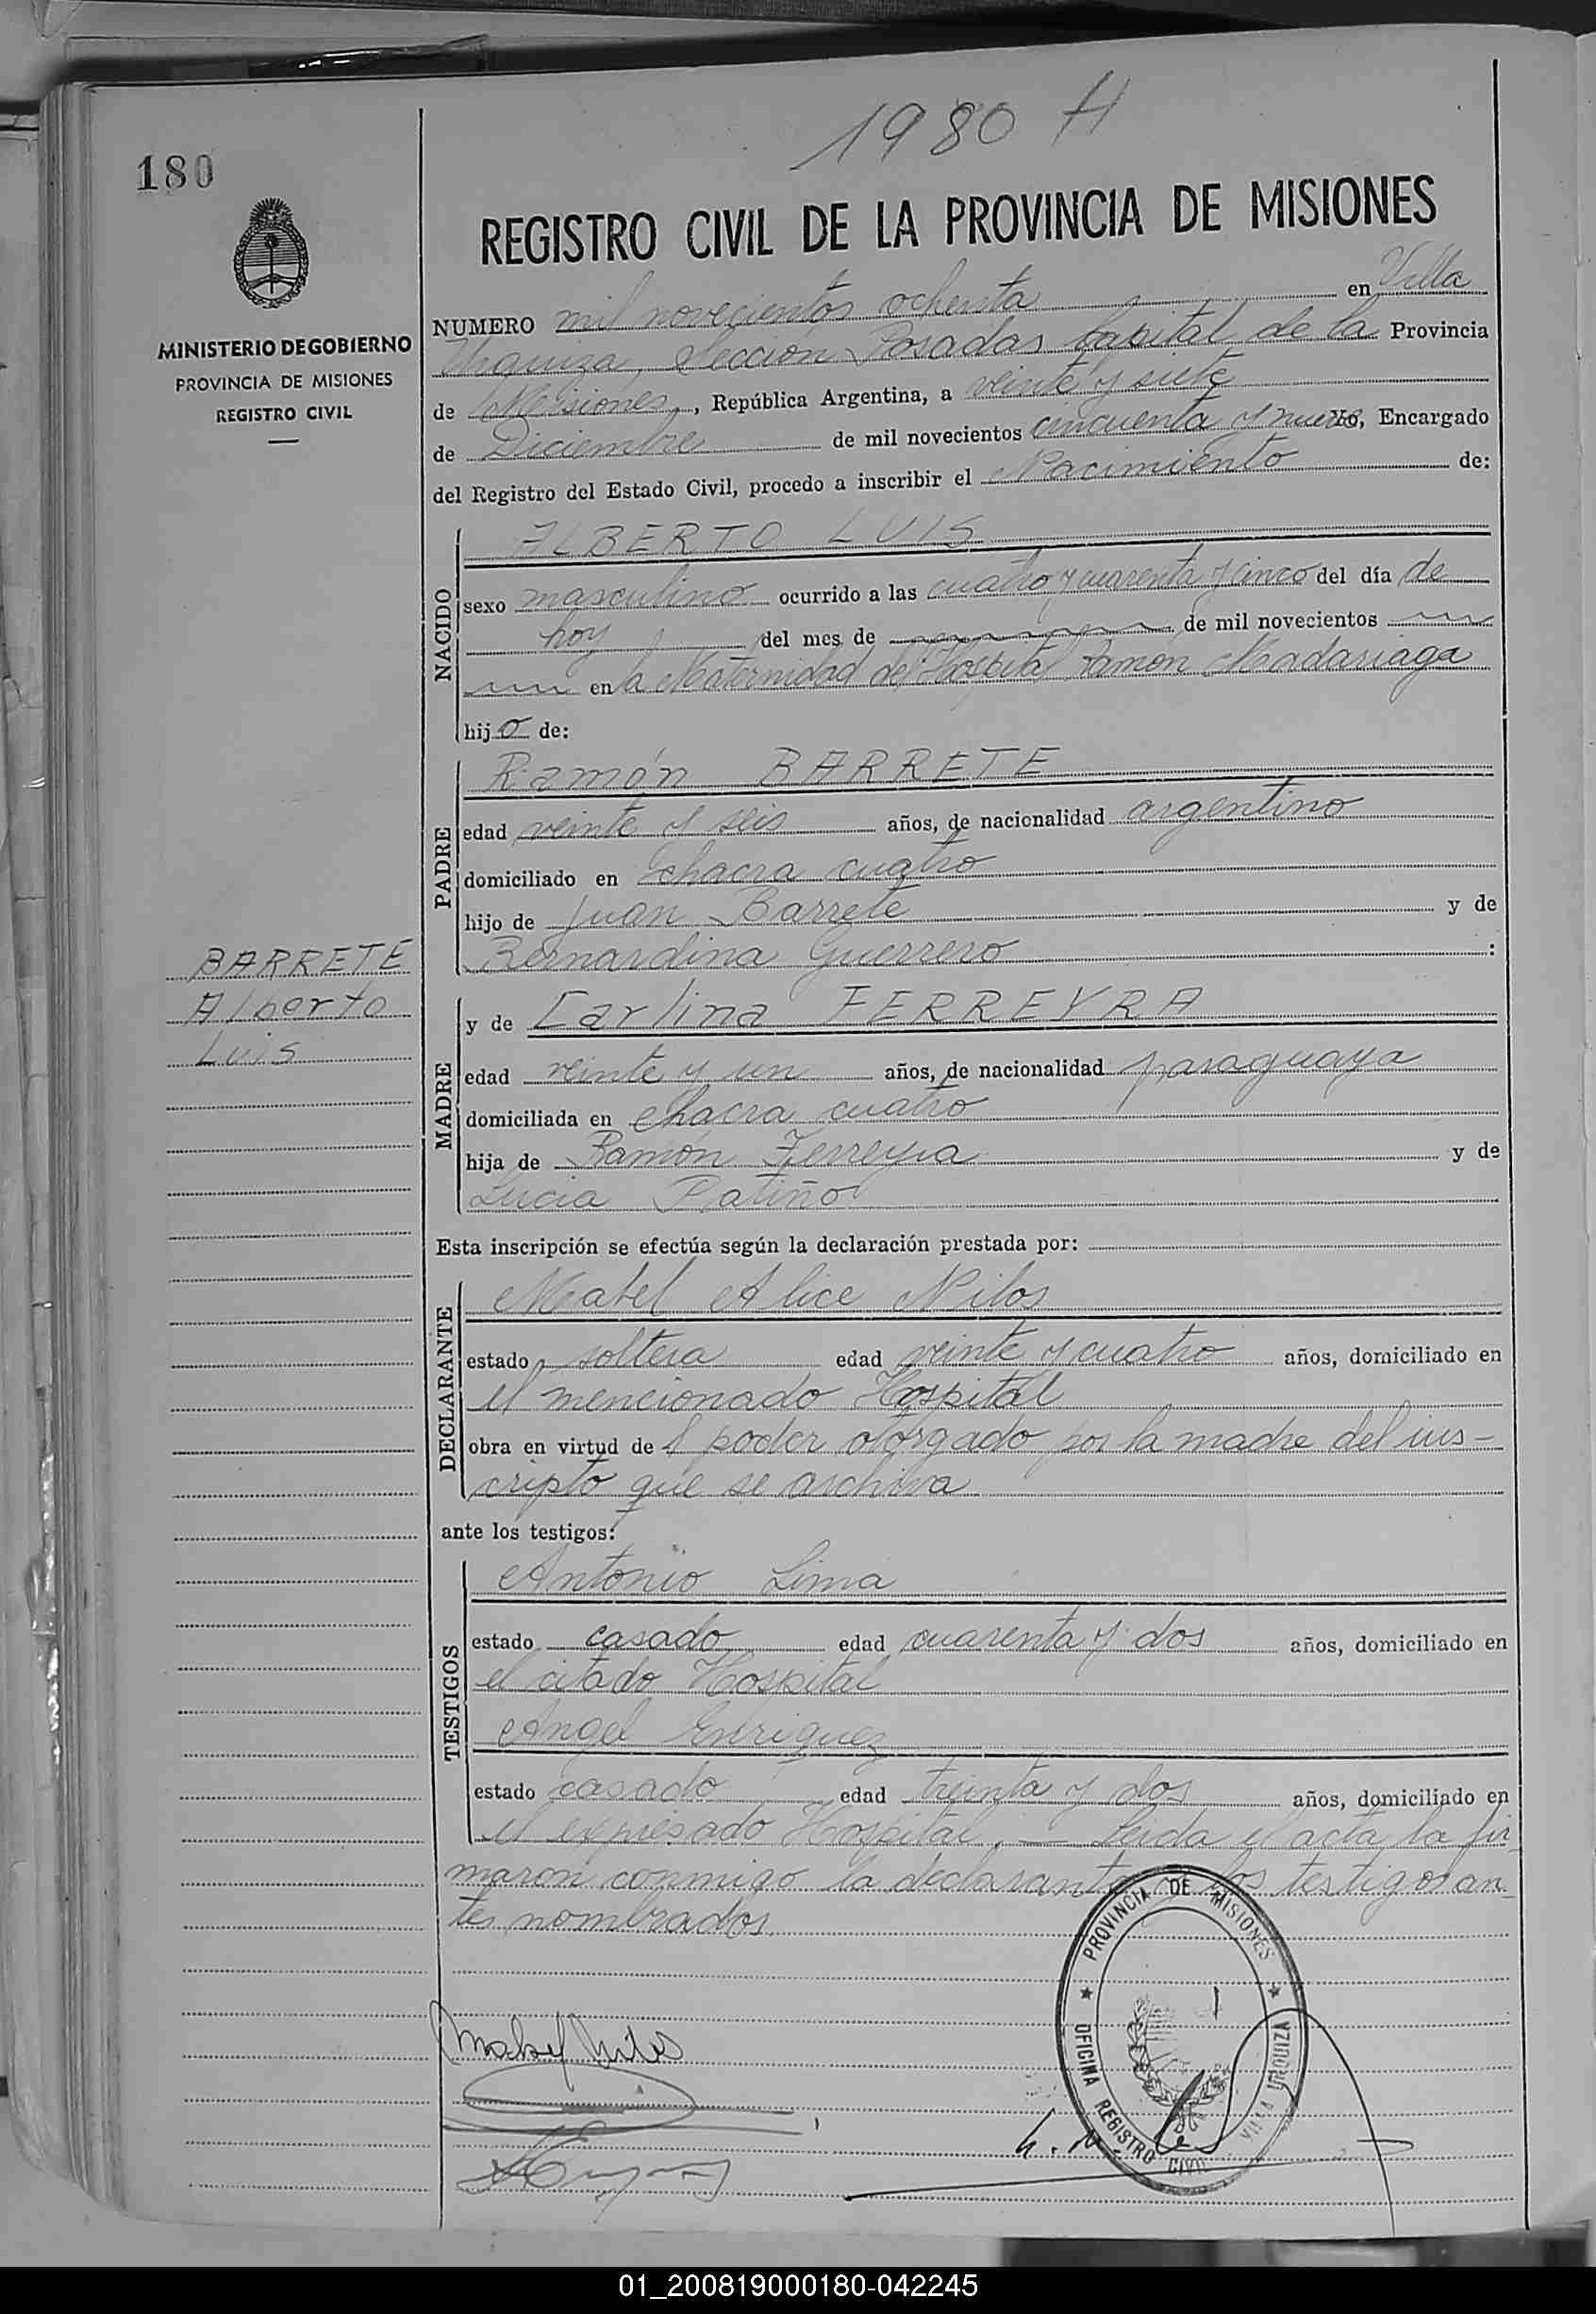 1980 H
180
REGISTRO CIVIL DE LA PROVINCIA DE MISIONES
MINISTERIO DE GOBIERNO
PROVINCIA DE MISIONES
REGISTRO CIVIL
NUMERO mil novecientos ochenta en Villa
Urquiza, Sección Posadas Capital de la Provincia
de Misiones, República Argentina, a veinte y siete
de Diciembre de mil novecientos cincuenta y nueve, Encargado
del Registro del Estado Civil, procedo a inscribir el Nacimiento de:
NACIDO
ALBERTO LUIS
sexo masculino ocurrido a las cuatro y cuarenta y cinco del día de
hoy del mes de de mil novecientos
en la Maternidad del Hospital Ramon Madariaga
hijo de:
PADRE
Ramón BARRETE
edad veinte y seis años, de nacionalidad argentino
domiciliado en chacra cuatro
hijo de Juan Barrete y de
Bernardina Guerrero :
BARRETE
Alberto
Luis
MADRE
y de Carlina FERREYRA
edad veinte y un años, de nacionalidad paraguaya
domiciliada en chacra cuatro
hija de Ramón Ferreyra y de
Lucia Patiño
Esta inscripción se efectúa según la declaración prestada por:
DECLARANTE
Mabel Alice Nilos
estado soltera edad veinte y cuatro años, domiciliado en
el mencionado Hospital
obra en virtud del poder otorgado por la madre del ins-
cripto que se archiva
ante los testigos:
TESTIGOS
Antonio Lima
estado casado edad cuarenta y dos años, domiciliado en
el citado Hospital
Angel Enriquez
estado casado edad treinta y dos años, domiciliado en
el expresado Hospital. — Leida el acta la fir
maron conmigo la declarante y los testigos an
tes nombrados.
PROVINCIA DE MISIONES
OFICINA REGISTRO CIVIL
VILLA URQUIZA
Mabel Nilos
01_200819000180-042245